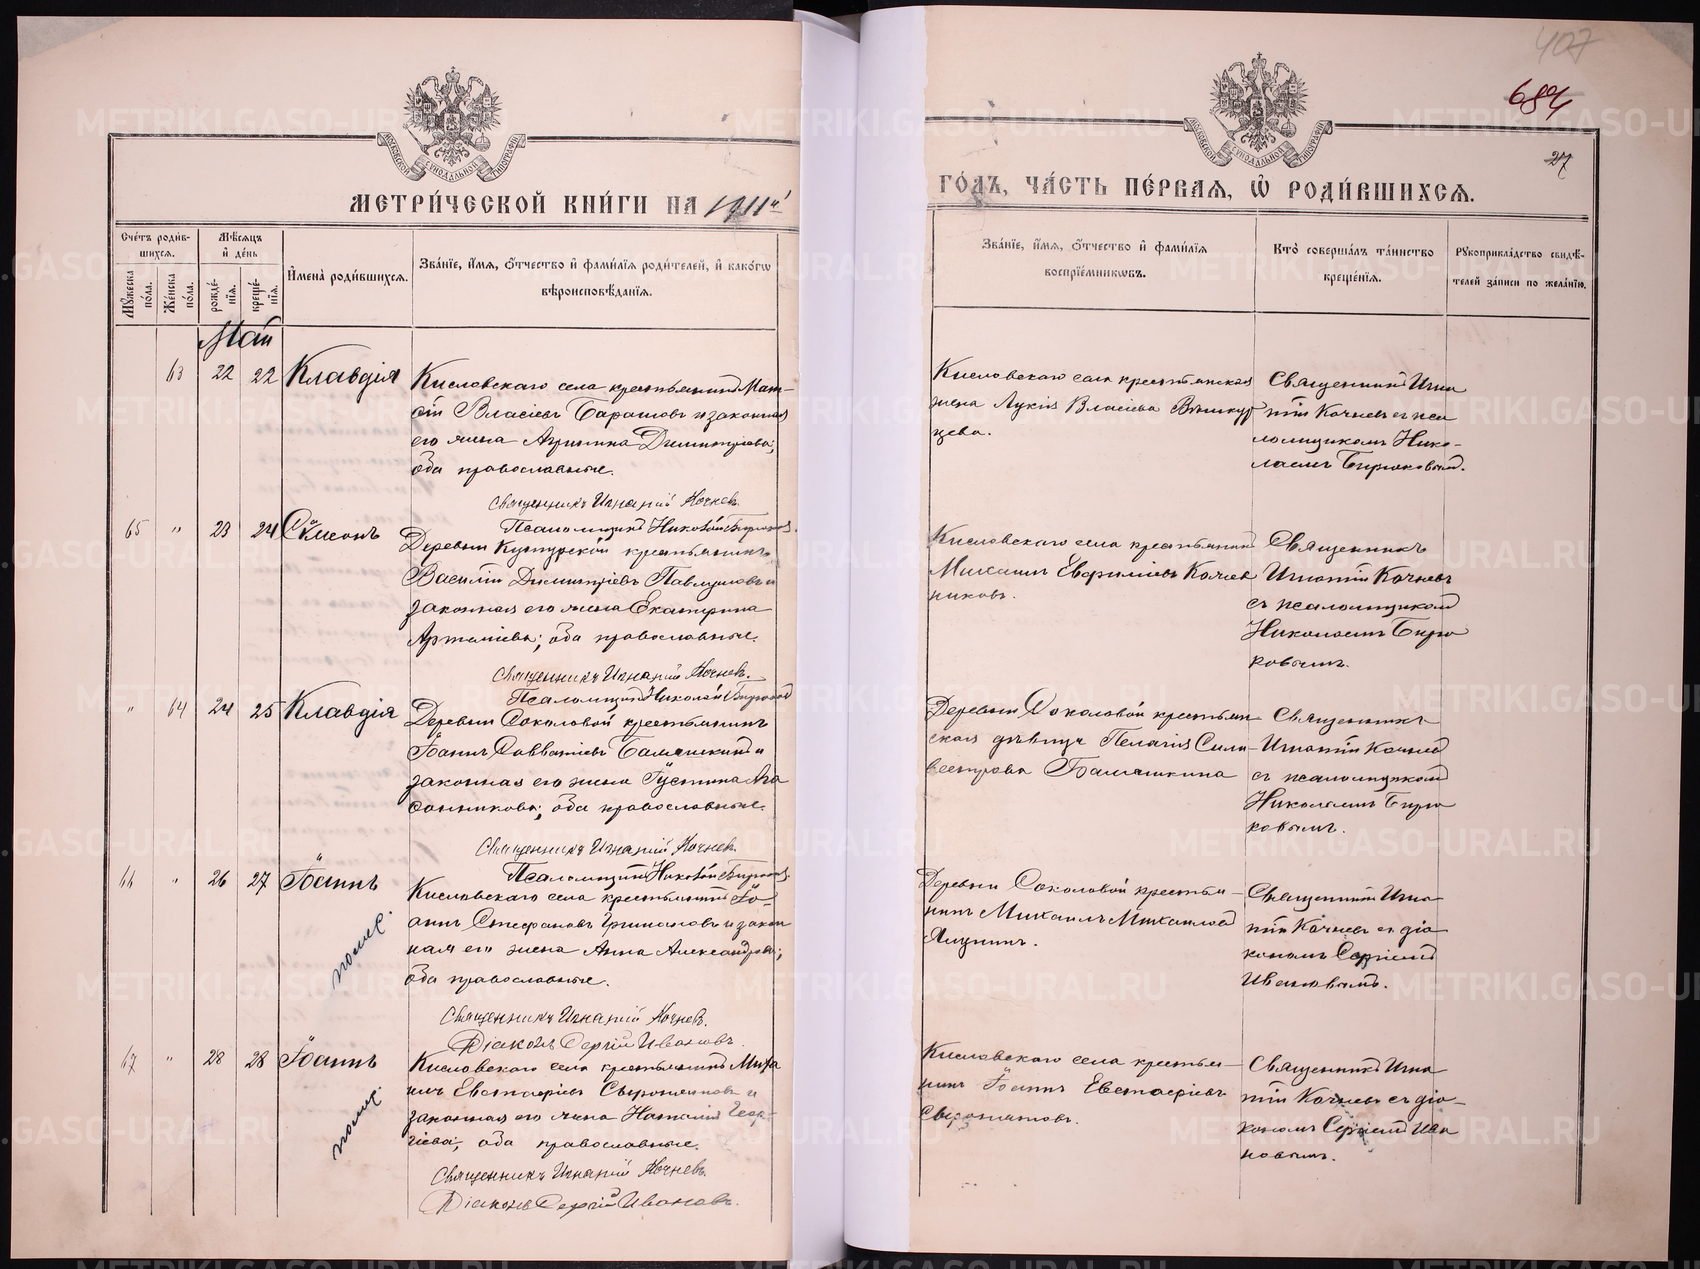 407
684
27
МЕТРИ́ЧЕСКОЙ КНИ́ГИ НА 1911й
ГО́ДЪ, ЧА́СТЬ ПЕ́РВАЯ, Ѡ РОДИ́ВШИХСЯ.
Сче́тъ роди́в-
шихся.
Му́жеска по́ла.
Же́нска по́ла.
Мѣ́сяцъ и де́нь
рожде́-
нїя.
креще́-
нїя.
Имена̀ роди́вшихся.
Зва́нїе, и́мя, о́тчество и фами́лїя роди́телей, и како́гѡ
вѣроисповѣ́данїя.
Зва́нїе, и́мя, о́тчество и фами́лїя
воспрїе́мникѡвъ.
Кто̀ соверша́лъ та́инство
креще́нїя.
Рꙋкоприкла́дство свидѣ́-
телей за́писи по жела́нїю.
Май
63 22 22 Клавдія
Кисловскаго села крестьянинъ Мат-
ѳій Власіевъ Барашовъ и законная
его жена Агрипина Димитріева;
оба православные.
Священникъ Игнатій Кочневъ.
Псаломщикъ Николай Бирюковъ
Кисловскаго села крестьянская
жена Лукія Власіева
цева.
Священникъ Игна
тій Кочневъ съ пса
ломщикомъ Нико-
лаемъ Бирюковымъ.
65 " 23 24 Сѷмеонъ
Деревни крестьянинъ
Василій Димитріевъ Павлуновъ и
законная его жена Екатерина
Артеміева; оба православные.
Священникъ Игнатій Кочневъ.
Псаломщикъ Николай Бирюковъ
Кисловскаго села крестьянинъ
Михаилъ Евфиміевъ Колчев
никовъ.
Священникъ
Игнатій Кочневъ
съ псаломщикомъ
Николаемъ Бирю
ковымъ.
" 64 24 25 Клавдія
Деревни Соколовой крестьянинъ
Іоаннъ Савватіевъ Балашкинъ и
законная его жена Іустина Ага
ѳонникова; оба православные.
Священникъ Игнатій Кочневъ.
Псаломщикъ Николай Бирюковъ
Деревни Соколовой крестьян
ская дѣвица Пелагія Силь-
вестрова Балашкина
Священникъ
Игнатій Кочневъ
съ псаломщикомъ
Николаемъ Бирю
ковымъ.
66 " 26 27 Іоаннъ
помер.
Кисловскаго села крестьянинъ Іо-
аннъ Стефановъ и закон
ная его жена Анна Александрова;
оба православные.
Священникъ Игнатій Кочневъ.
Діаконъ Сергій Ивановъ.
Деревни Соколовой крестья-
нинъ Михаилъ Михаиловъ
Ялунинъ.
Священникъ Игна
тій Кочневъ съ діа
кономъ Сергіемъ
Ивановымъ.
67 " 28 28 Іоаннъ
помер.
Кисловскаго села крестьянинъ Миха
илъ Евстафіевъ Сыропятовъ и
законная его жена Наталія Геор-
гіева; оба православные.
Священникъ Игнатій Кочневъ.
Діаконъ Сергій Ивановъ.
Кисловскаго села крестья-
нинъ Іоаннъ Евстафіевъ
Сыропятовъ.
Священникъ Игна
тій Кочневъ съ діа-
кономъ Сергіемъ Ива
новымъ.
METRIKI.GASO-URAL.RU